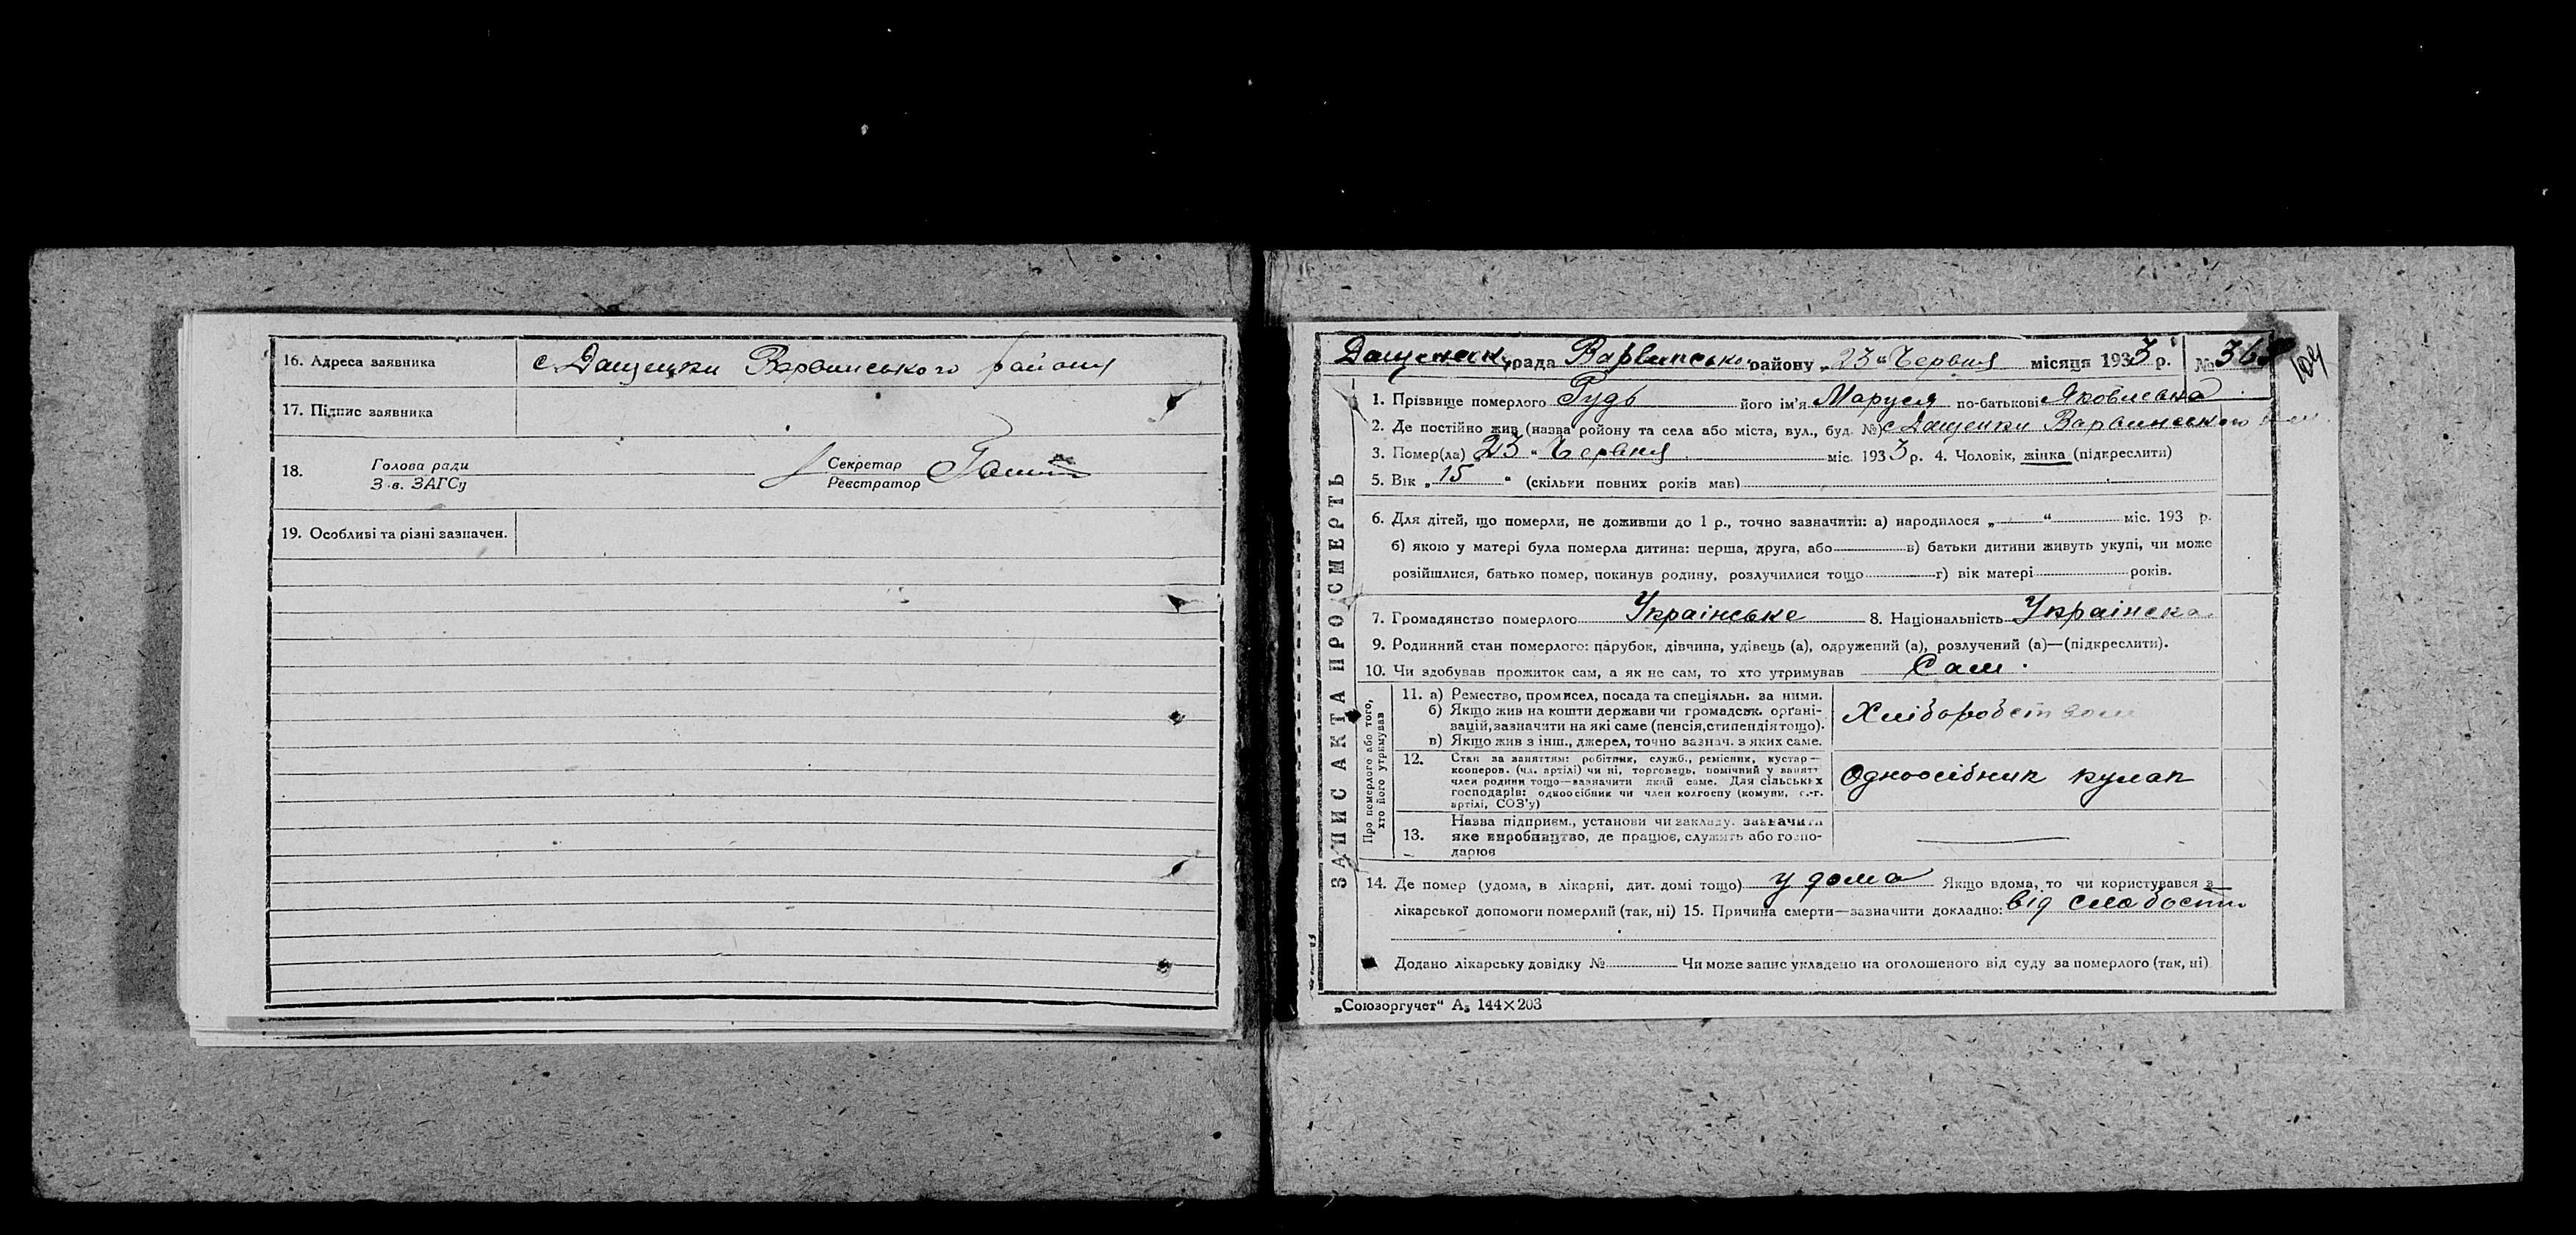 16. Адреса заявника с. Дащенки Варвинського району
17. Підпис заявника
18. Голова ради Секретар
З·в. ЗАГСу Реєстратор
19. Особливі та різні зазначен.
ЗАПИС АКТА ПРО СМЕРТЬ
Дащенськ. рада Варвинсько району „23“ Червня місяця 1933 р. № 36
104
1. Прізвище померлого Гудь його ім'я Маруся по-батькові Яковлевна
2. Де постійно жив (назва ройону та села або міста, вул., буд. №) с Дащенки Варвинського
3. Помер(ла) 23 „ Червня міс. 1933 р. 4. Чоловік, жінка (підкреслити)
5. Вік „ 15 “ (скільки повних років мав)
6. Для дітей, що померли, не доживши до 1 р., точно зазначити: а) народилося „ “ міс. 193 р.
б) якою у матері була померла дитина: перша, друга, або в) батьки дитини живуть укупі, чи може
розійшлися, батько помер, покинув родину, розлучилися тощо г) вік матері років.
7. Громадянство померлого Українське 8. Національність Українска
9. Родинний стан померлого: парубок, дівчина, удівець (а), одружений (а), розлучений (а)—(підкреслити).
10. Чи здобував прожиток сам, а як не сам, то хто утримував Сам.
Про померлого або того,
хто його утримував
11. а) Ремество, промисел, посада та спеціяльн. за ними.
б) Якщо жив на кошти держави чи громадськ. орґані-
зацій, зазначити на які саме (пенсія, стипендія тощо).
в) Якщо жив з інш., джерел, точно зазнач. з яких саме.
Хліборобством
12. Стан за заняттям: робітник, служб., ремісник, кустар—
кооперов. (чл. артілі) чи ні, торговець, помічний у занятт
член родини тощо—зазначити який саме. Для сільських
господарів: одноосібник чи член колгоспу (комуни, с.-г.
артілі, СОЗ'у)
Одноосібник кулак
13. Назва підприєм., установи чи закладу. зазначити
яке виробництво, де працює, служить або госпо-
дарює
14. Де помер (удома, в лікарні, дит. домі тощо) у дома Якщо вдома, то чи користувався з
лікарської допомоги померлий (так, ні) 15. Причина смерти—зазначити докладно: від слабости
Додано лікарську довідку № Чи може запис укладено на оголошеного від суду за померлого (так, ні)
„Союзоргучет“ А₅ 144×203